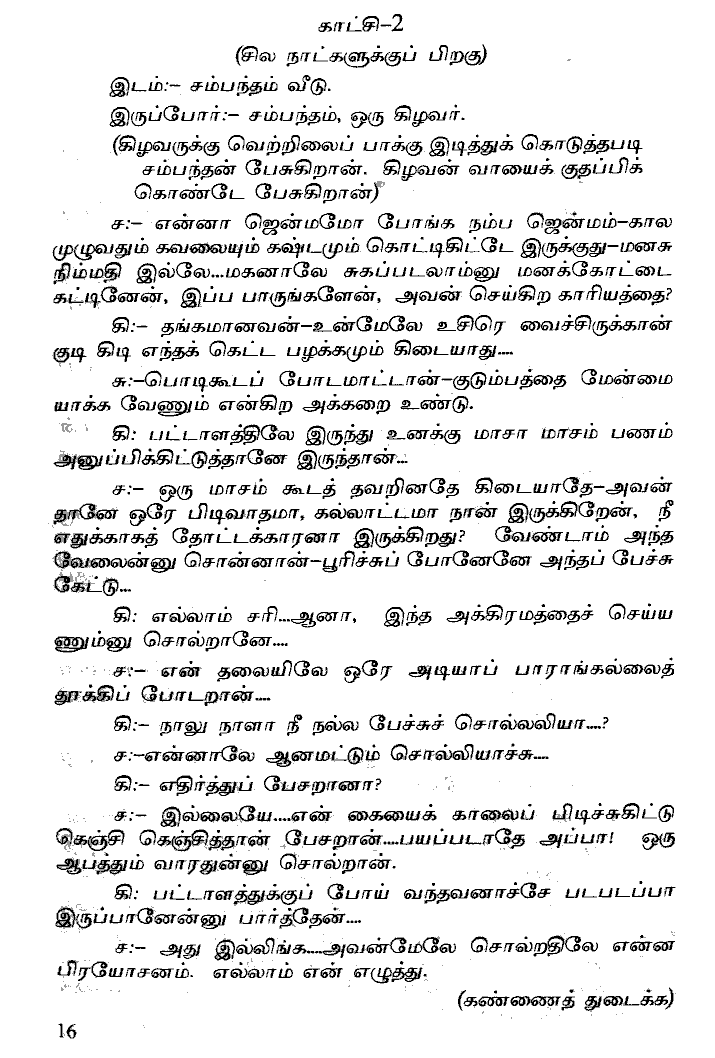 காட்சி–2
(சில நாட்களுக்குப் பிறகு)
இடம்:– சம்பந்தம் வீடு.
இருப்போர்:– சம்பந்தம், ஒரு கிழவர்.
(கிழவருக்கு வெற்றிலைப் பாக்கு இடித்துக் கொடுத்தபடி
சம்பந்தன் பேசுகிறான். கிழவன் வாயைக் குதப்பிக்
கொண்டே பேசுகிறான்)
ச:– என்னா ஜென்மமோ போங்க நம்ப ஜென்மம்–கால
முழுவதும் கவலையும் கஷ்டமும் கொட்டிகிட்டே இருக்குது–மனசு
நிம்மதி இல்லே...மகனாலே சுகப்படலாம்னு மனக்கோட்டை
கட்டினேன், இப்ப பாருங்களேன், அவன் செய்கிற காரியத்தை?
கி:– தங்கமானவன்–உன்மேலே உசிரெ வைச்சிருக்கான்
குடி கிடி எந்தக் கெட்ட பழக்கமும் கிடையாது....
சு:–பொடிகூடப் போடமாட்டான்–குடும்பத்தை மேன்மை
யாக்க வேணும் என்கிற அக்கறை உண்டு.
கி: பட்டாளத்திலே இருந்து உனக்கு மாசா மாசம் பணம்
அனுப்பிக்கிட்டுத்தானே இருந்தான்...
ச:– ஒரு மாசம் கூடத் தவறினதே கிடையாதே–அவன்
தானே ஒரே பிடிவாதமா, கல்லாட்டமா நான் இருக்கிறேன், நீ
எதுக்காகத் தோட்டக்காரனா இருக்கிறது? வேண்டாம் அந்த
வேலைன்னு சொன்னான்–பூரிச்சுப் போனேனே அந்தப் பேச்சு
கேட்டு...
கி: எல்லாம் சரி...ஆனா, இந்த அக்கிரமத்தைச் செய்ய
ணும்னு சொல்றானே....
ச:– என் தலையிலே ஒரே அடியாப் பாராங்கல்லைத்
தூக்கிப் போடறான்....
கி:– நாலு நாளா நீ நல்ல பேச்சுச் சொல்லலியா....?
ச:–என்னாலே ஆனமட்டும் சொல்லியாச்சு....
கி:– எதிர்த்துப் பேசறானா?
ச:– இல்லையே....என் கையைக் காலைப் பிடிச்சுகிட்டு
கெஞ்சி கெஞ்சித்தான் பேசறான்....பயப்படாதே அப்பா! ஒரு
ஆபத்தும் வாரதுன்னு சொல்றான்.
கி: பட்டாளத்துக்குப் போய் வந்தவனாச்சே படபடப்பா
இருப்பானேன்னு பார்த்தேன்....
ச:– அது இல்லிங்க....அவன்மேலே சொல்றதிலே என்ன
பிரயோசனம். எல்லாம் என் எழுத்து.
(கண்ணைத் துடைக்க)
16